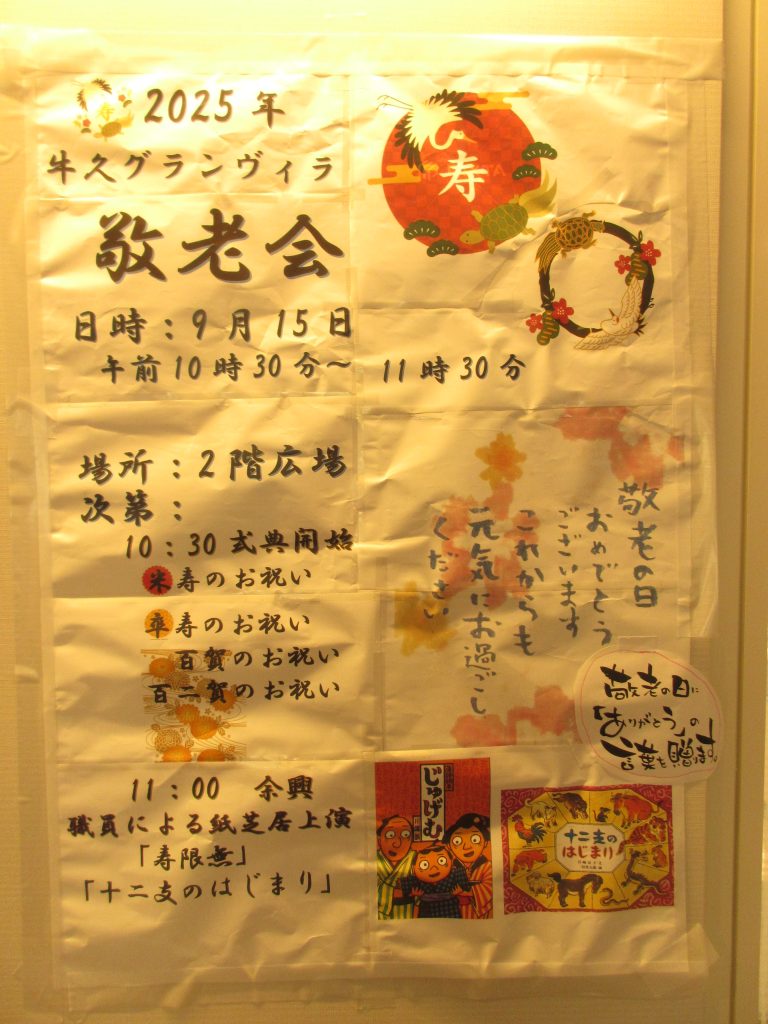 2025年
牛久グランヴィラ
敬老会
日時：9月15日
午前10時30分～11時30分
場所：2階広場
次第：
10：30式典開始
米寿のお祝い
卒寿のお祝い
百賀のお祝い
百二賀のお祝い
11：00 余興
職員による紙芝居上演
「寿限無」
「十二支のはじまり」
寿
寿
敬老の日
おめでとう
ございます
これからも
元気にお過ごし
ください
敬老の日に
「ありがとう」の
言葉を贈ります。
じゅげむ
十二支の
はじまり